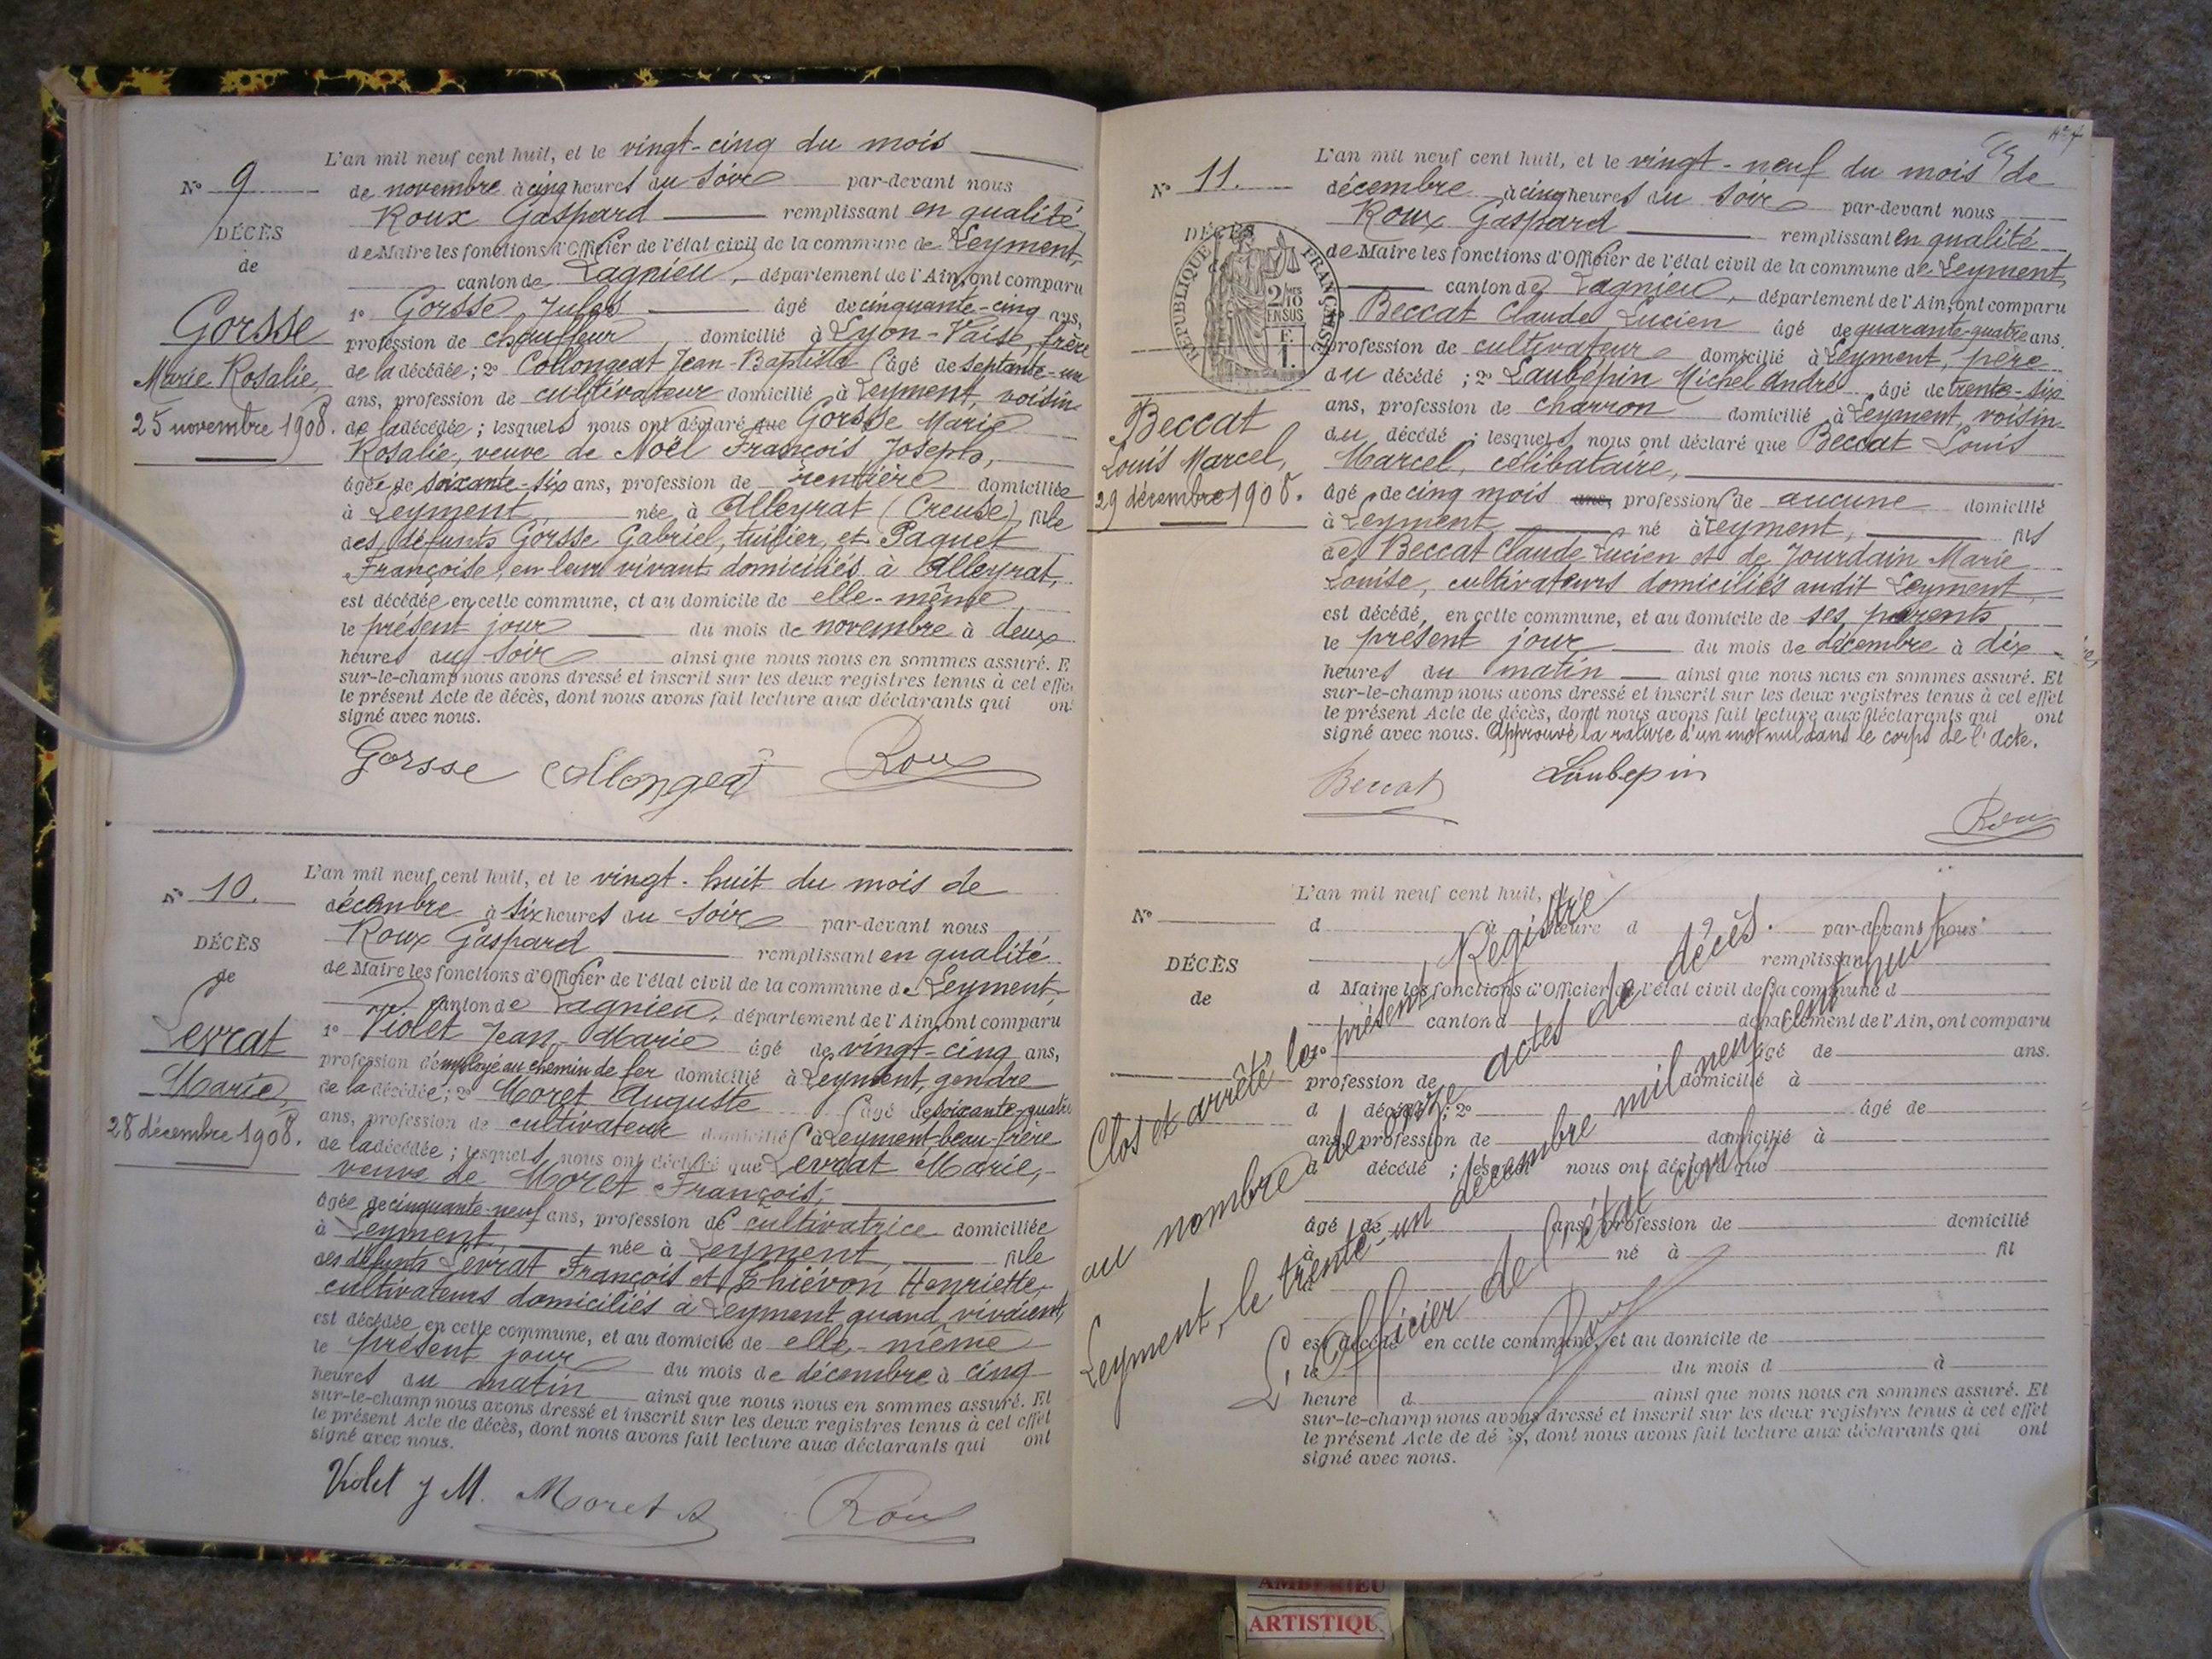 L'an mil neuf cent huit, et le vingt-cinq du mois
N° 9
de novembre à cinq heures du soir par-devant nous
Roux Gaspard remplissant en qualité
DÉCÈS
de Maire les fonctions d'Officier de l'état civil de la commune de Leyment,
de
canton de Lagnieu, département de l'Ain, ont comparu
1° Gorsse Jules âgé de cinquante-cinq ans,
Gorsse
profession de chauffeur, domicilié à Lyon-Vaise, frère
de la décédée; 2° Collongeat Jean-Baptiste âgé de septante-un
Marie Rosalie
ans, profession de cultivateur domicilié à Leyment, voisin
25 novembre 1908.
de la décédée; lesquels nous ont déclaré que Gorsse Marie
Rosalie, veuve de Noël François Joseph,
âgée de soixante-six ans, profession de rentière domiciliée
à Leyment, née à Alleyrat (Creuse), fille
des défunts Gorsse Gabriel, tuilier, et Paquet
Françoise, en leur vivant domiciliés à Alleyrat,
est décédée en cette commune, et au domicile de elle-même
le présent jour du mois de novembre à deux
heures du soir ainsi que nous nous en sommes assuré. E
sur-le-champ nous avons dressé et inscrit sur les deux registres tenus à cet effe
le présent Acte de décès, dont nous avons fait lecture aux déclarants qui ont
signé avec nous.
Gorsse Collongeat Roux
L'an mil neuf cent huit, et le vingt-huit du mois de
N° 10.
décembre à six heures du soir par-devant nous
Roux Gaspard remplissant en qualité
DÉCÈS
de Maire les fonctions d'Officier de l'état civil de la commune de Leyment,
de
canton de Lagnieu, département de l'Ain, ont comparu
1° Violet Jean-Marie âgé de vingt-cinq ans,
Levrat
profession d'employé au chemin de fer domicilié à Leyment, gendre
Marie,
de la décédée; 2° Moret Auguste âgé de soixante-quatre
28 décembre 1908.
ans, profession de cultivateur domicilié à Leyment, beau-frère
de la décédée; lesquels nous ont déclaré que Levrat Marie,
veuve de Moret François,
âgée de cinquante-neuf ans, profession de cultivatrice domiciliée
à Leyment, née à Leyment, fille
des défunts Levrat François et Thiévon Henriette,
cultivateurs domiciliés à Leyment quand vivaient,
est décédée en cette commune, et au domicile de elle-même
le présent jour du mois de décembre à cinq
heures du matin ainsi que nous nous en sommes assuré. Et
sur-le-champ nous avons dressé et inscrit sur les deux registres tenus à cet effet
le présent Acte de décès, dont nous avons fait lecture aux déclarants qui ont
signé avec nous.
Violet J M. Moret A Roux
L'an mil neuf cent huit, et le vingt-neuf du mois de
N° 11.
décembre à cinq heures du soir par-devant nous
Roux Gaspard remplissant en qualité
DÉCÈS
RÉPUBLIQUE FRANÇAISE
2/10MES EN SUS
F. 1.
de Maire les fonctions d'Officier de l'état civil de la commune de Leyment,
canton de Lagnieu, département de l'Ain, ont comparu
Beccat Claude Lucien âgé de quarante-quatre ans.
profession de cultivateur domicilié à Leyment, père
du décédé; 2° Laubépin Michel André âgé de trente-six
ans, profession de charron domicilié à Leyment, voisin
Beccat
du décédé; lesquels nous ont déclaré que Beccat Louis
Louis Marcel,
Marcel, célibataire,
29 décembre 1908.
âgé de cinq mois ans, profession de aucune domicilié
à Leyment né à Leyment, fils
de Beccat Claude Lucien et de Jourdain Marie
Louise, cultivateurs domiciliés audit Leyment,
est décédé, en cette commune, et au domicile de ses parents
le présent jour du mois de décembre à dix
heures du matin ainsi que nous nous en sommes assuré. Et
sur-le-champ nous avons dressé et inscrit sur les deux registres tenus à cet effet
le présent Acte de décès, dont nous avons fait lecture aux déclarants qui ont
signé avec nous. Approuvé la rature d'un mot nul dans le corps de l'acte.
Beccat Laubepin
Roux
L'an mil neuf cent huit,
N°
d à heure d par-devant nous
remplissant
DÉCÈS
d Maire les fonctions d'Officier de l'état civil de la commune d
de
canton d département de l'Ain, ont comparu
âgé de ans.
profession de domicilié à
d décédé; 2° âgé de
ans, profession de domicilié à
d décédé; lesquels nous ont déclaré que
âgé de ans, profession de domicilié
à né à fil
est décédé en cette commune, et au domicile de
le du mois d à
heure d ainsi que nous nous en sommes assuré. Et
sur-le-champ nous avons dressé et inscrit sur les deux registres tenus à cet effet
le présent Acte de décès, dont nous avons fait lecture aux déclarants qui ont
signé avec nous.
Clos et arrêté le présent Registre
au nombre de onze actes de décès.
Leyment, le trente-un décembre mil neuf cent huit
L'Officier de l'état civil
Roux
AMBERIEU
ARTISTIQU